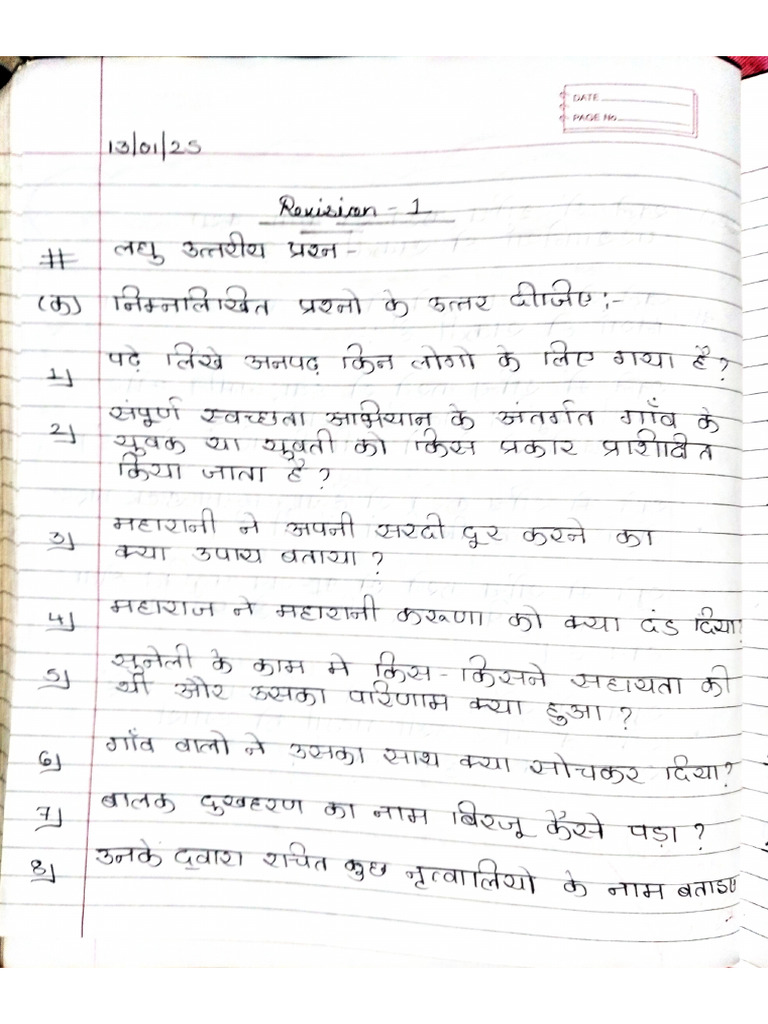 DATE
PAGE No.
13/01/25
Revision - 1
# लघु उत्तरीय प्रश्न -
(क) निम्नलिखित प्रश्नो के उत्तर दीजिए :-
1) पढ़े लिखे अनपढ़ किन लोगो के लिए गया है ?
2) संपूर्ण स्वच्छता अभियान के अंतर्गत गाँव के
युवक या युवती को किस प्रकार प्रशिक्षित
किया जाता है ?
3) महारानी ने अपनी सरदी दूर करने का
क्या उपाय बताया ?
4) महाराज ने महारानी करूणा को क्या दंड दिया?
5) सुनेली के काम मे किस - किसने सहायता की
थी और उसका परिणाम क्या हुआ ?
6) गाँव वालो ने उसका साथ क्या सोचकर दिया?
7) बालक दुखहरण का नाम बिरजू कैसे पड़ा ?
8) उनके द्वारा रचित कुछ नृत्वालियो के नाम बताइए